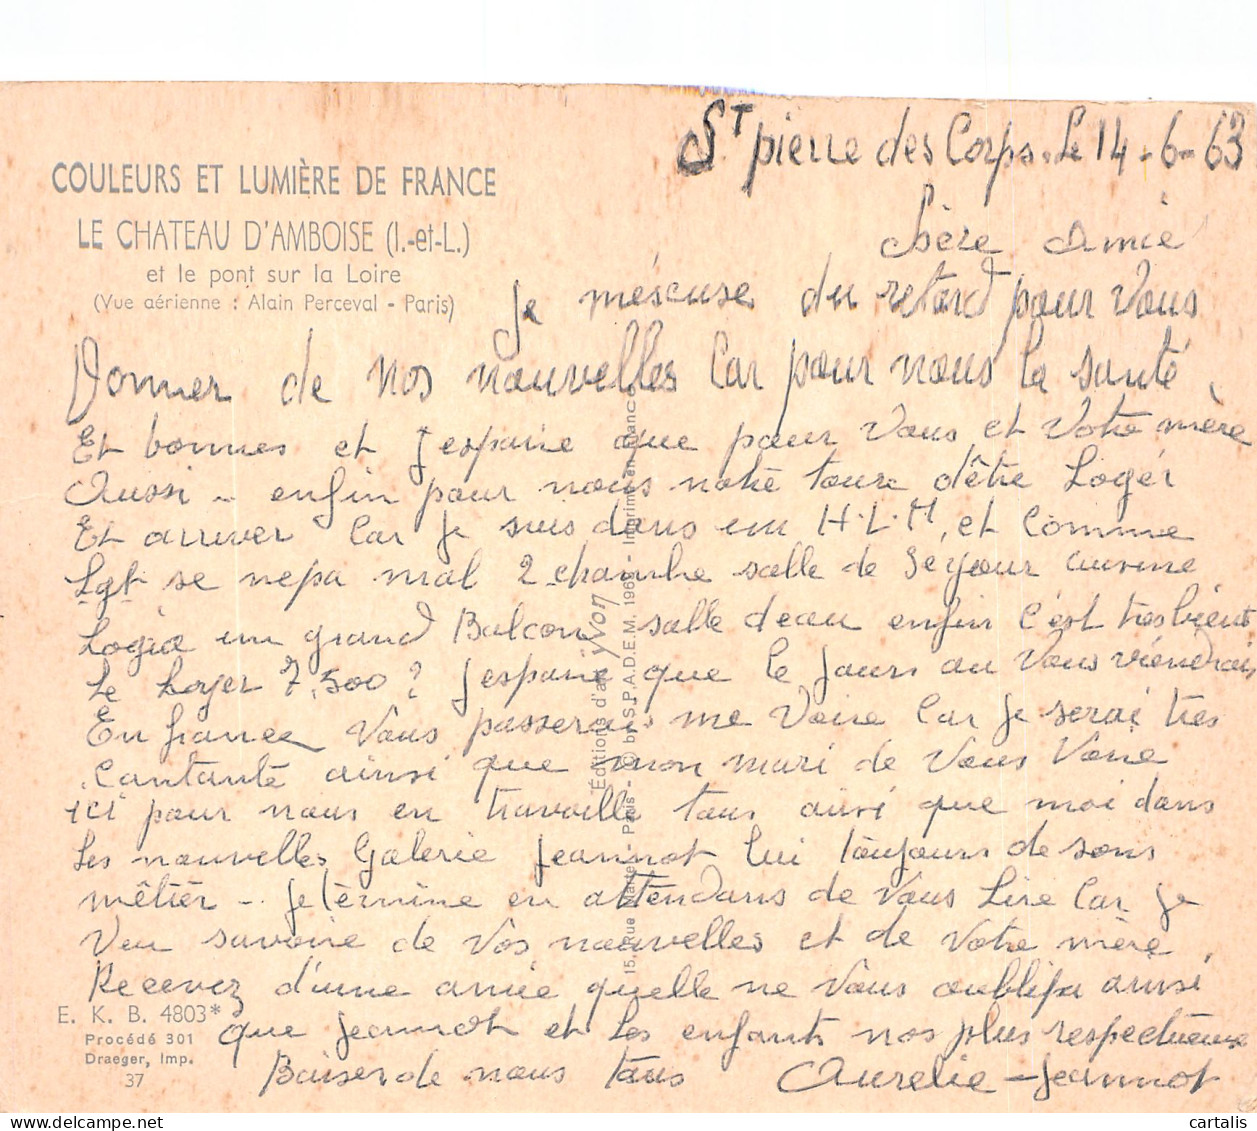 St pierre des Corps. Le 14-6-63
COULEURS ET LUMIÈRE DE FRANCE
LE CHATEAU D'AMBOISE (I.-et-L.)
et le pont sur la Loire
(Vue aérienne : Alain Perceval - Paris)
Chère Amie
Je méscuse du retard pour Vous
Donner de nos nouvelles Car pour nous la santé
Et bonnes et J'espaire que pour Vous et Votre mère
Aussi - enfin pour nous notre toure d'être Logér
Et arriver Car je suis dans un H.L.M, et Comme
Lgt se nepa mal 2 chambre salle de Sejour cuisine
Logia un grand Balcon salle deau enfin C'est tres bient
Le Loyer 7.500 ? J'espaire que le Jours au Vous viendrais
En france Vous passerais me Voire Car Je serai tres
Cantante ainsi que mon mari de Vous Voire
ici pour nous en travaille tous ainsi que moi dans
Les nouvelles Galerie Jeannot lui toujours de sons
mêtièr - Je tèrmine en attendans de Vous Lire Car Je
Veu savoire de Vos nouvelles et de Votre mère,
Recevez d'une amie quelle ne Vous oublipa ainsi
que Jeannot et Les enfants nos plus respectueuse
Baiser de nous tous Aurelie - Jeannot
Éditions d'art Yvon
15, rue Paris - © by S.P.A.D.E.M. 196 - Imprimé en France
E. K. B. 4803*
Procédé 301
Draeger, Imp.
37
cartalis